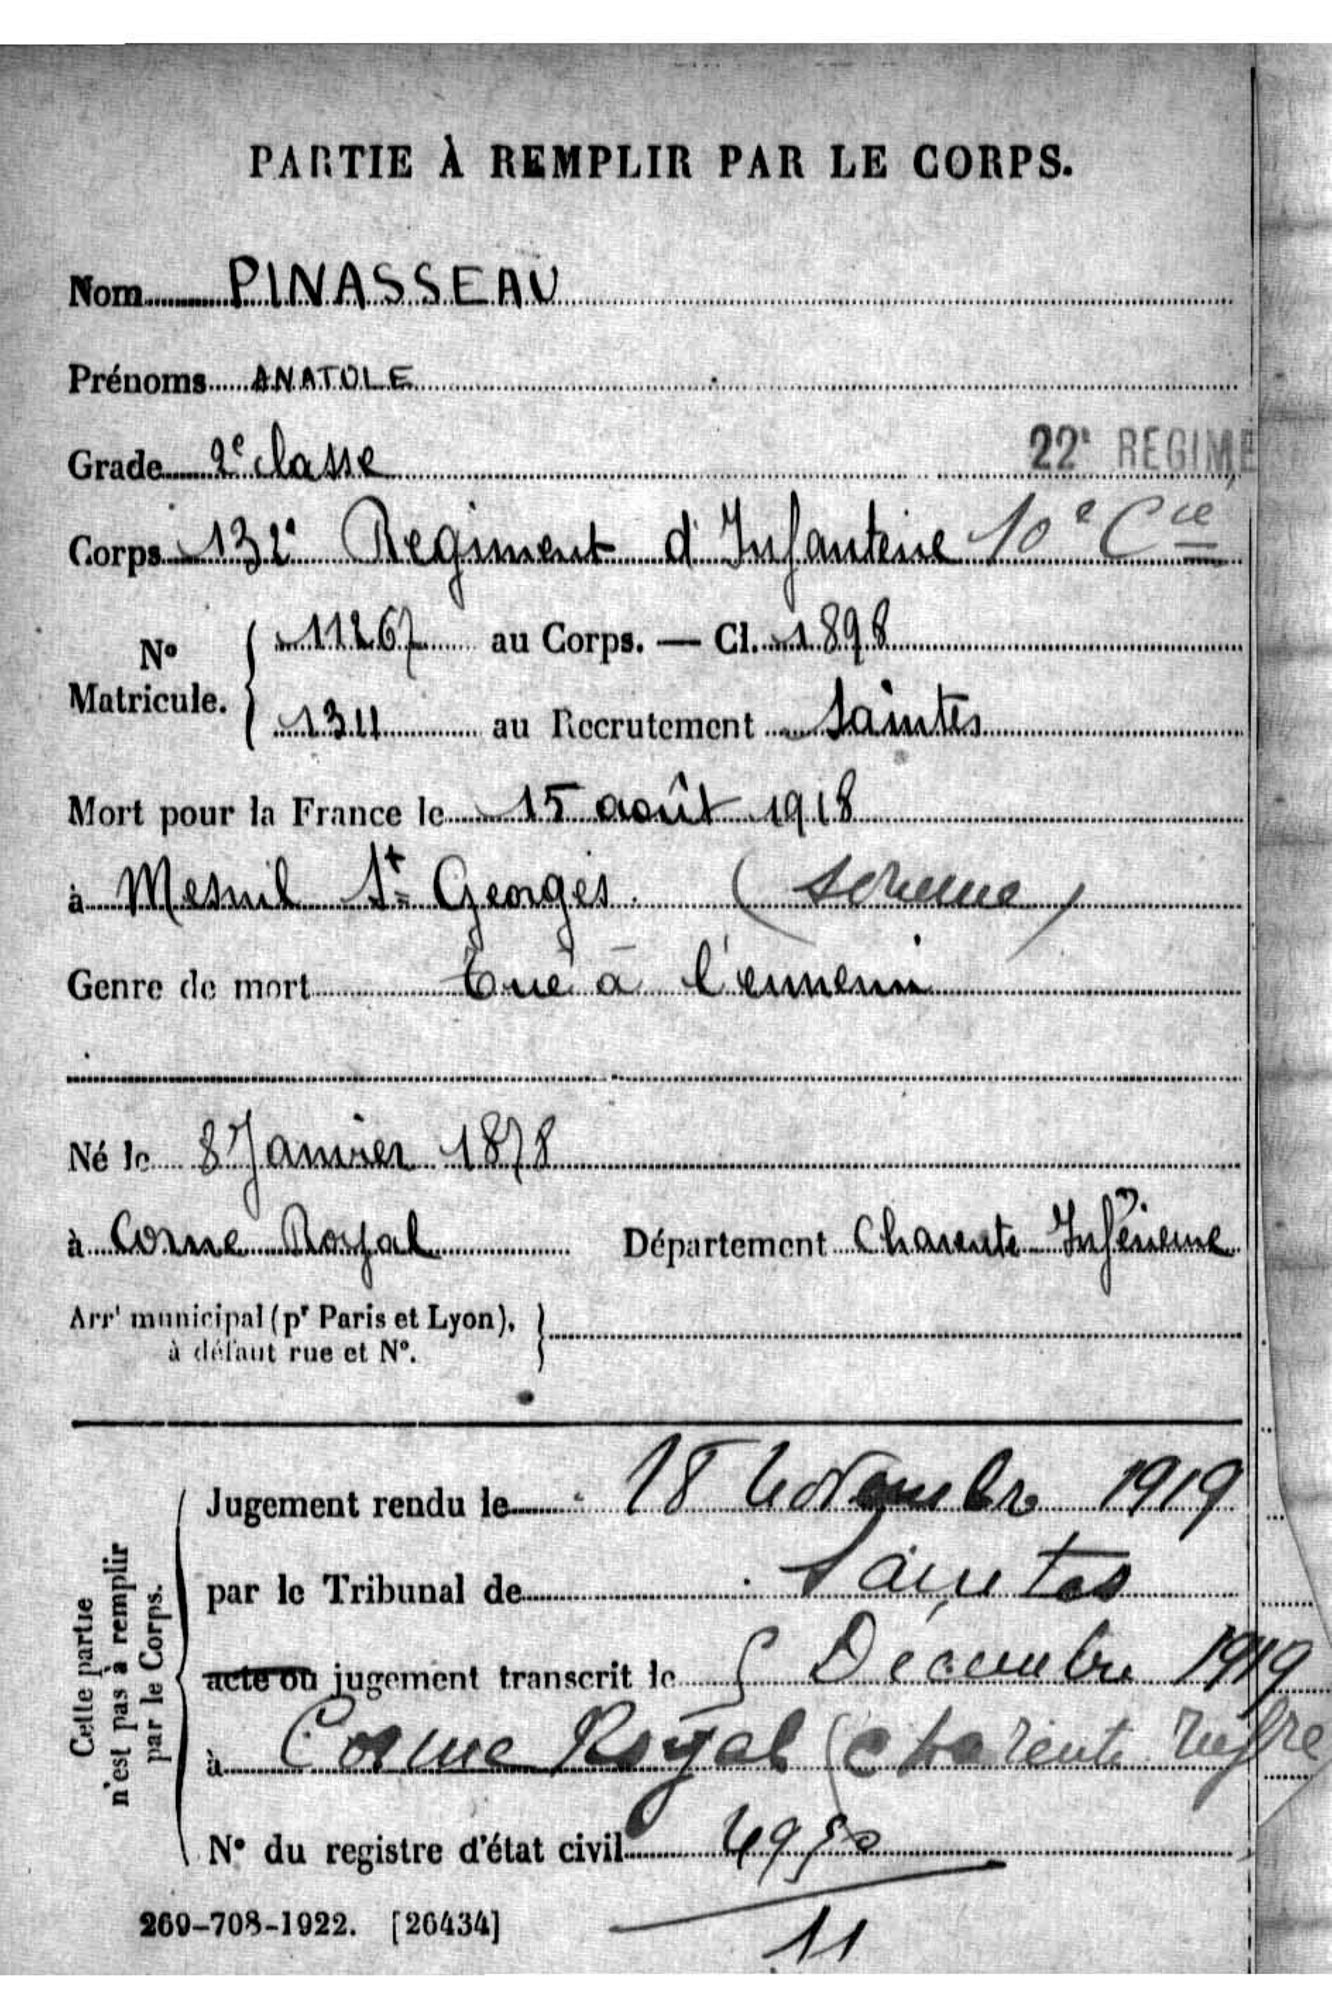 PARTIE À REMPLIR PAR LE CORPS.
Nom PINASSEAU
Prénoms ANATOLE
Grade 2e classe
22e REGIME
Corps 132e Regiment d'Infanterie 10e Cie
No Matricule. 11267 au Corps. — Cl. 1898
1311 au Recrutement Saintes
Mort pour la France le 15 août 1918
à Mesnil St Georges (somme)
Genre de mort tué à l'ennemi
Né le 8 Janvier 1878
à Corme Royal Département Charente Inférieure
Arrt municipal (pr Paris et Lyon), à défaut rue et No.
Cette partie n'est pas à remplir par le Corps.
Jugement rendu le 18 novembre 1919
par le Tribunal de Saintes
acte ou jugement transcrit le 5 Décembre 1919
à Corme Royal (Charente Infre
No du registre d'état civil
269-708-1922. [26434]
11